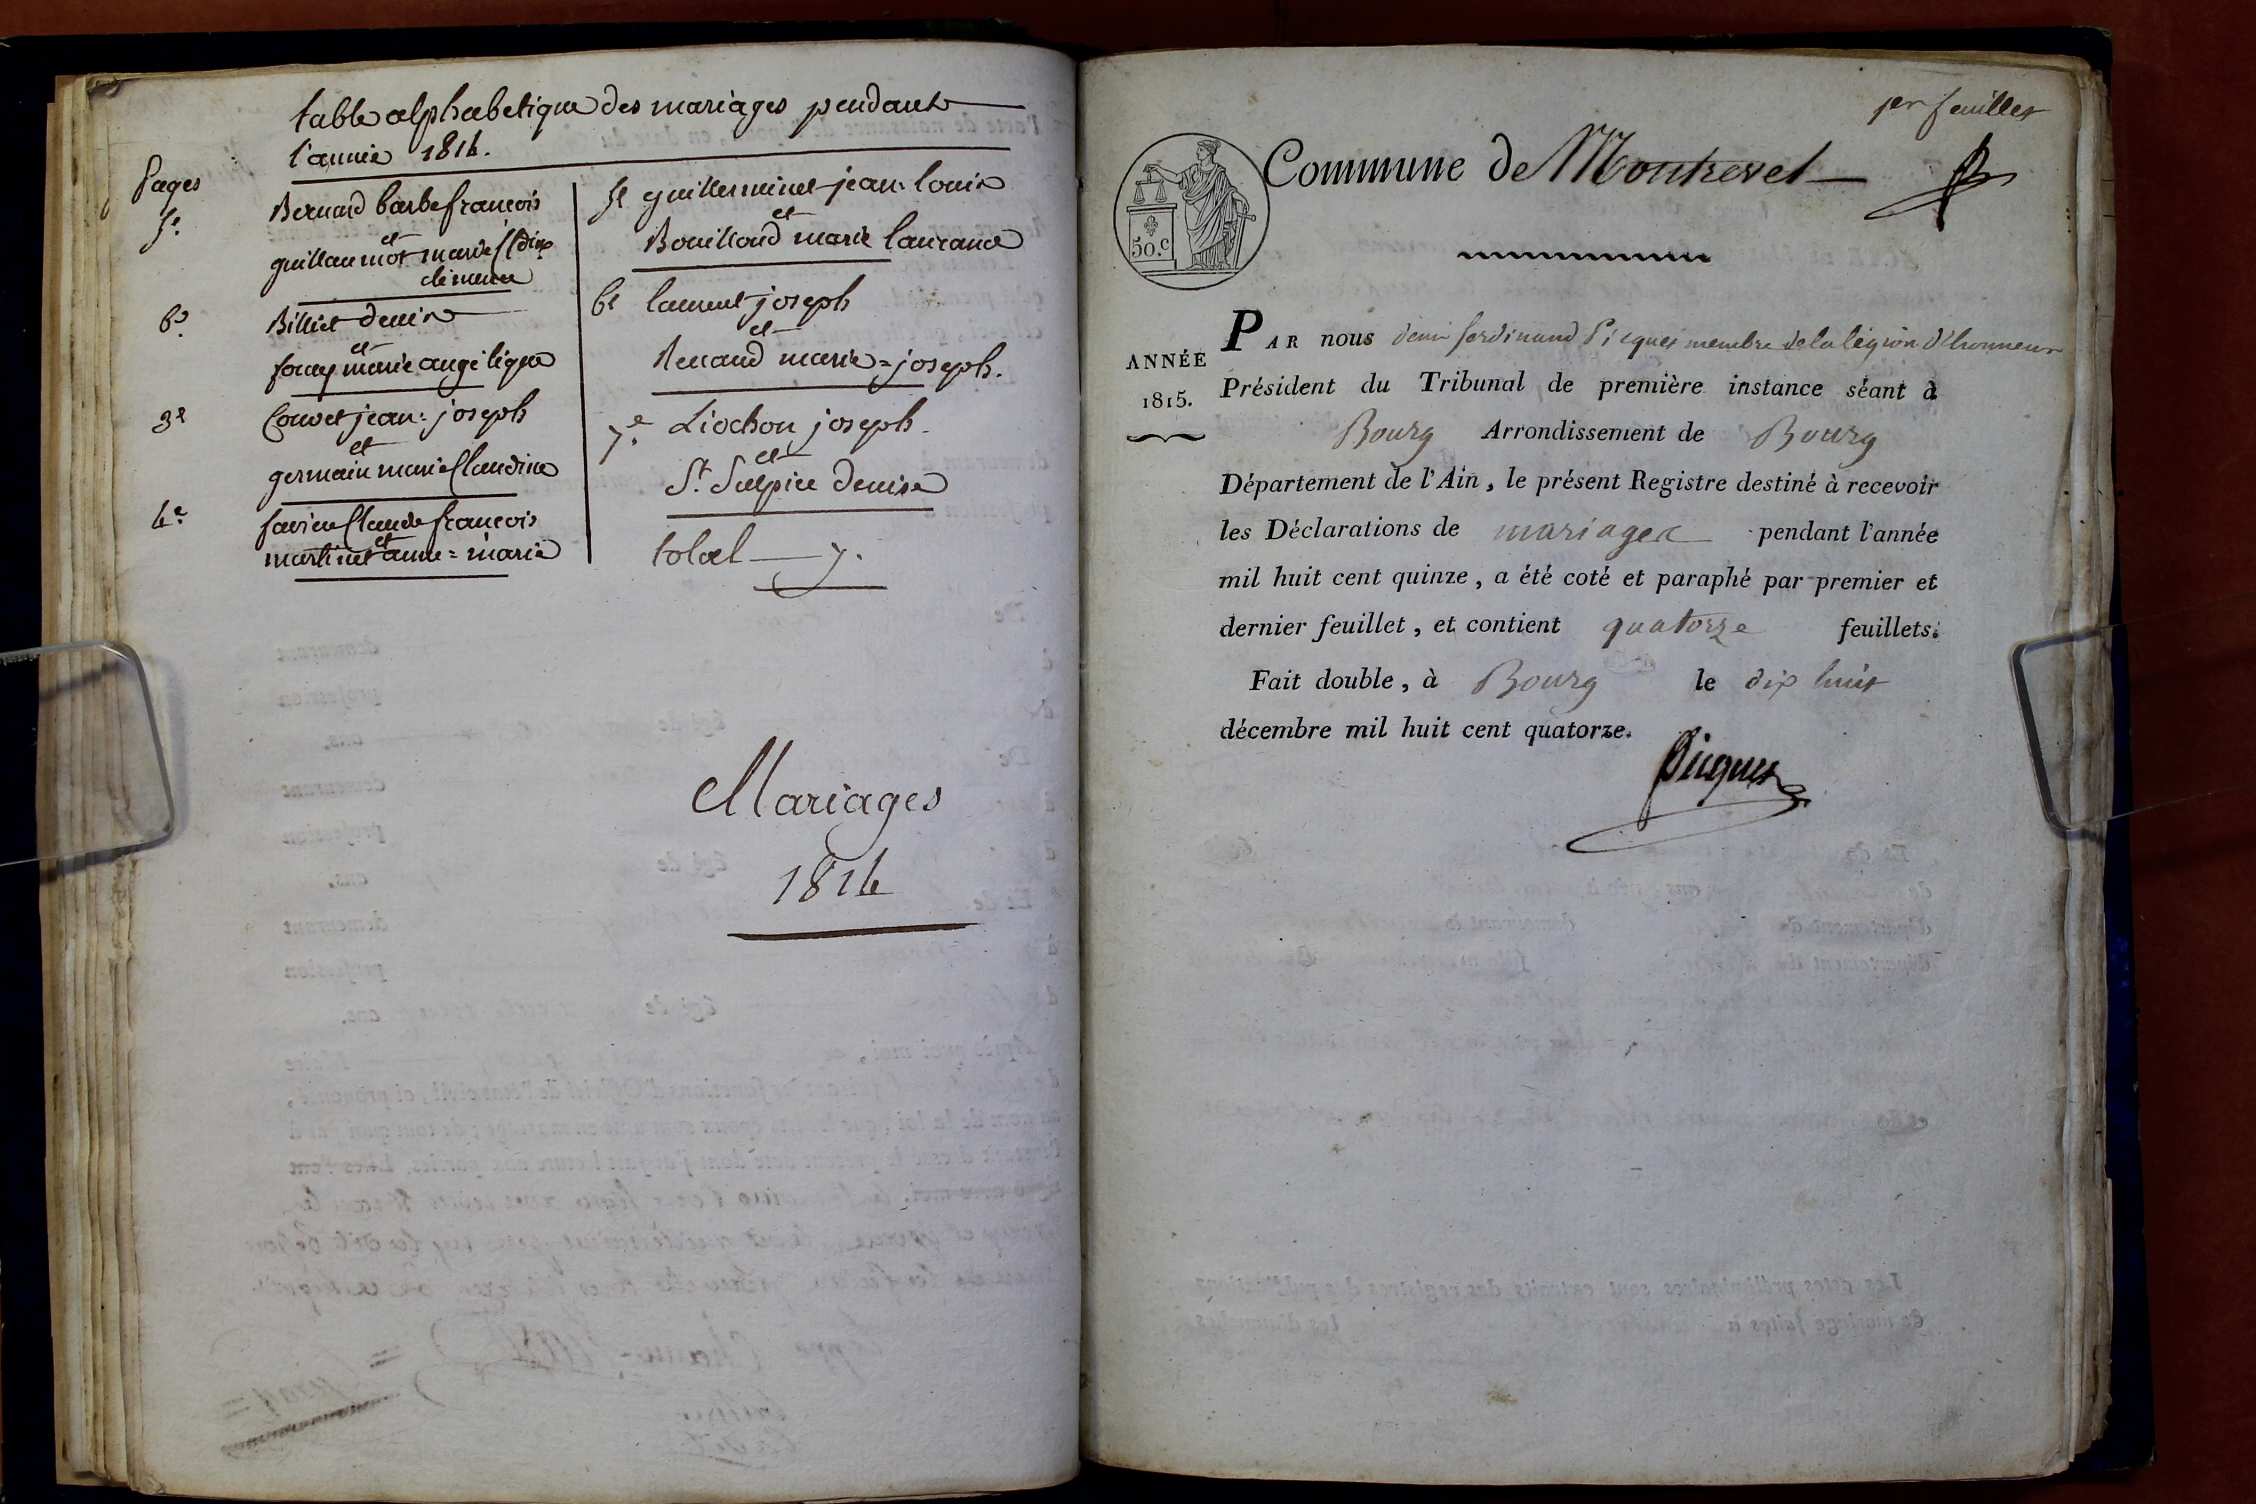 table alphabetique des mariages pendant
l'année 1814.
Pages
Bernard barbe françois
et
guillaumot marie
clemence
6e
Billiet denis
et
marie angelique
3e
Convet jean: joseph
et
germain marie Claudine
4e
favier Claude françois
et
martinet anne = marie
5e guillerminet jean: louis
et
Bouilloud marie laurance
6e laurent joseph
et
Renaud marie = joseph.
7e Liochon joseph
et
St. Sulpice denise
total — 7.
Mariages
1814
1er feuillet
Commune de Montrevel
50.c
ANNÉE
1815.
PAR nous denis ferdinand Picquet membre de la légion d'honneur
Président du Tribunal de première instance séant à
Bourg Arrondissement de Bourg
Département de l'Ain, le présent Registre destiné à recevoir
les Déclarations de mariages pendant l'année
mil huit cent quinze, a été coté et paraphé par premier et
dernier feuillet, et contient quatorze feuillets.
Fait double, à Bourg le dix huit
décembre mil huit cent quatorze.
Picquet